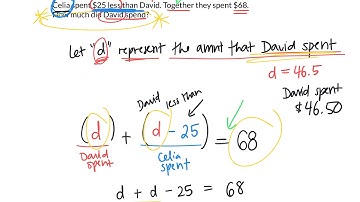 Celia spent $25 less than David. Together they spent $68.
How much did David spend?
Let "d" represent the amnt that David spent
d = 46.5
David spent
$46.50
David less than
(d) + (d - 25) = 68
David spent
Celia spent
d + d - 25 = 68